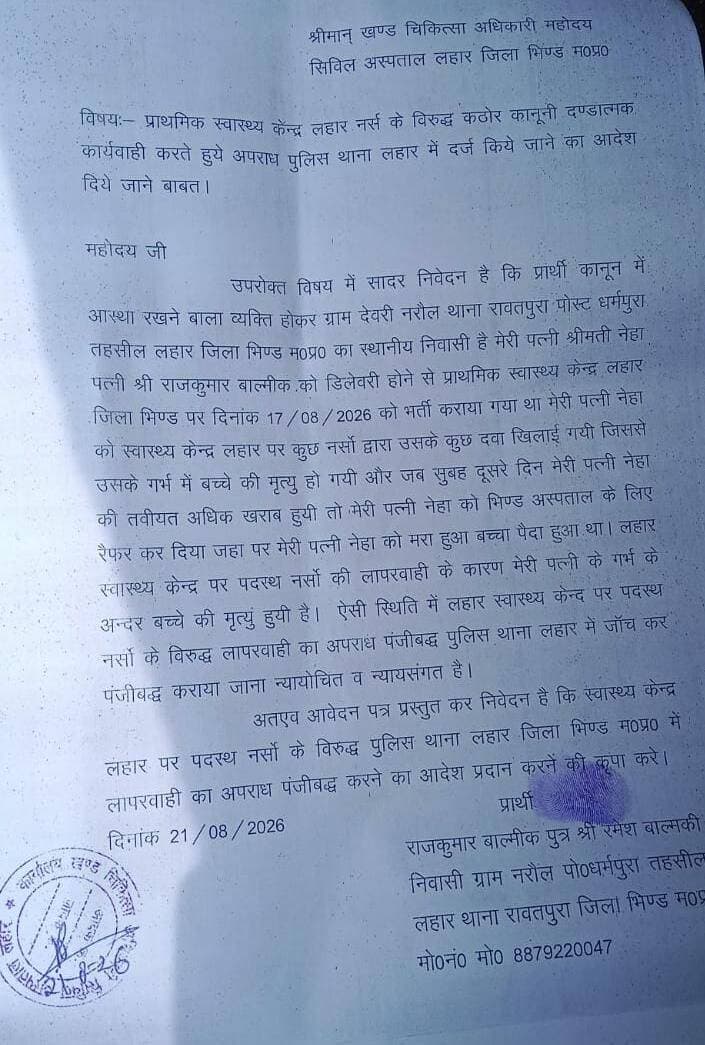 श्रीमान् खण्ड चिकित्सा अधिकारी महोदय
सिविल अस्पताल लहार जिला भिण्ड म0प्र0
विषयः– प्राथमिक स्वास्थ्य केन्द्र लहार नर्स के विरुद्ध कठोर कानूनी दण्डात्मक
कार्यवाही करते हुये अपराध पुलिस थाना लहार में दर्ज किये जाने का आदेश
दिये जाने बाबत।
महोदय जी
उपरोक्त विषय में सादर निवेदन है कि प्रार्थी कानून में
आस्था रखने बाला व्यक्ति होकर ग्राम देवरी नरौल थाना रावतपुरा पोस्ट धर्मपुरा
तहसील लहार जिला भिण्ड म0प्र0 का स्थानीय निवासी है मेरी पत्नी श्रीमती नेहा
पत्नी श्री राजकुमार बाल्मीक को डिलेवरी होने से प्राथमिक स्वास्थ्य केन्द्र लहार
जिला भिण्ड पर दिनांक 17/08/2026 को भर्ती कराया गया था मेरी पत्नी नेहा
को स्वास्थ्य केन्द्र लहार पर कुछ नर्सो द्वारा उसके कुछ दवा खिलाई गयी जिससे
उसके गर्भ में बच्चे की मृत्यु हो गयी और जब सुबह दूसरे दिन मेरी पत्नी नेहा
की तवीयत अधिक खराब हुयी तो मेरी पत्नी नेहा को भिण्ड अस्पताल के लिए
रैफर कर दिया जहा पर मेरी पत्नी नेहा को मरा हुआ बच्चा पैदा हुआ था। लहार
स्वास्थ्य केन्द्र पर पदस्थ नर्सो की लापरवाही के कारण मेरी पत्नी के गर्भ के
अन्दर बच्चे की मृत्युं हुयी है। ऐसी स्थिति में लहार स्वास्थ्य केन्द पर पदस्थ
नर्सो के विरुद्ध लापरवाही का अपराध पंजीबद्ध पुलिस थाना लहार में जॉच कर
पंजीबद्ध कराया जाना न्यायोचित व न्यायसंगत है।
अतएव आवेदन पत्र प्रस्तुत कर निवेदन है कि स्वास्थ्य केन्द्र
लहार पर पदस्थ नर्सो के विरुद्ध पुलिस थाना लहार जिला भिण्ड म0प्र0 में
लापरवाही का अपराध पंजीबद्ध करने का आदेश प्रदान करनें की कृपा करे।
प्रार्थी
दिनांक 21/08/2026
राजकुमार बाल्मीक पुत्र श्री रमेश बाल्मकी
निवासी ग्राम नरौल पो0धर्मपुरा तहसील
लहार थाना रावतपुरा जिला भिण्ड म0प्र
मो0नं0 मो0 8879220047
कार्यालय खण्ड चिकित्सा